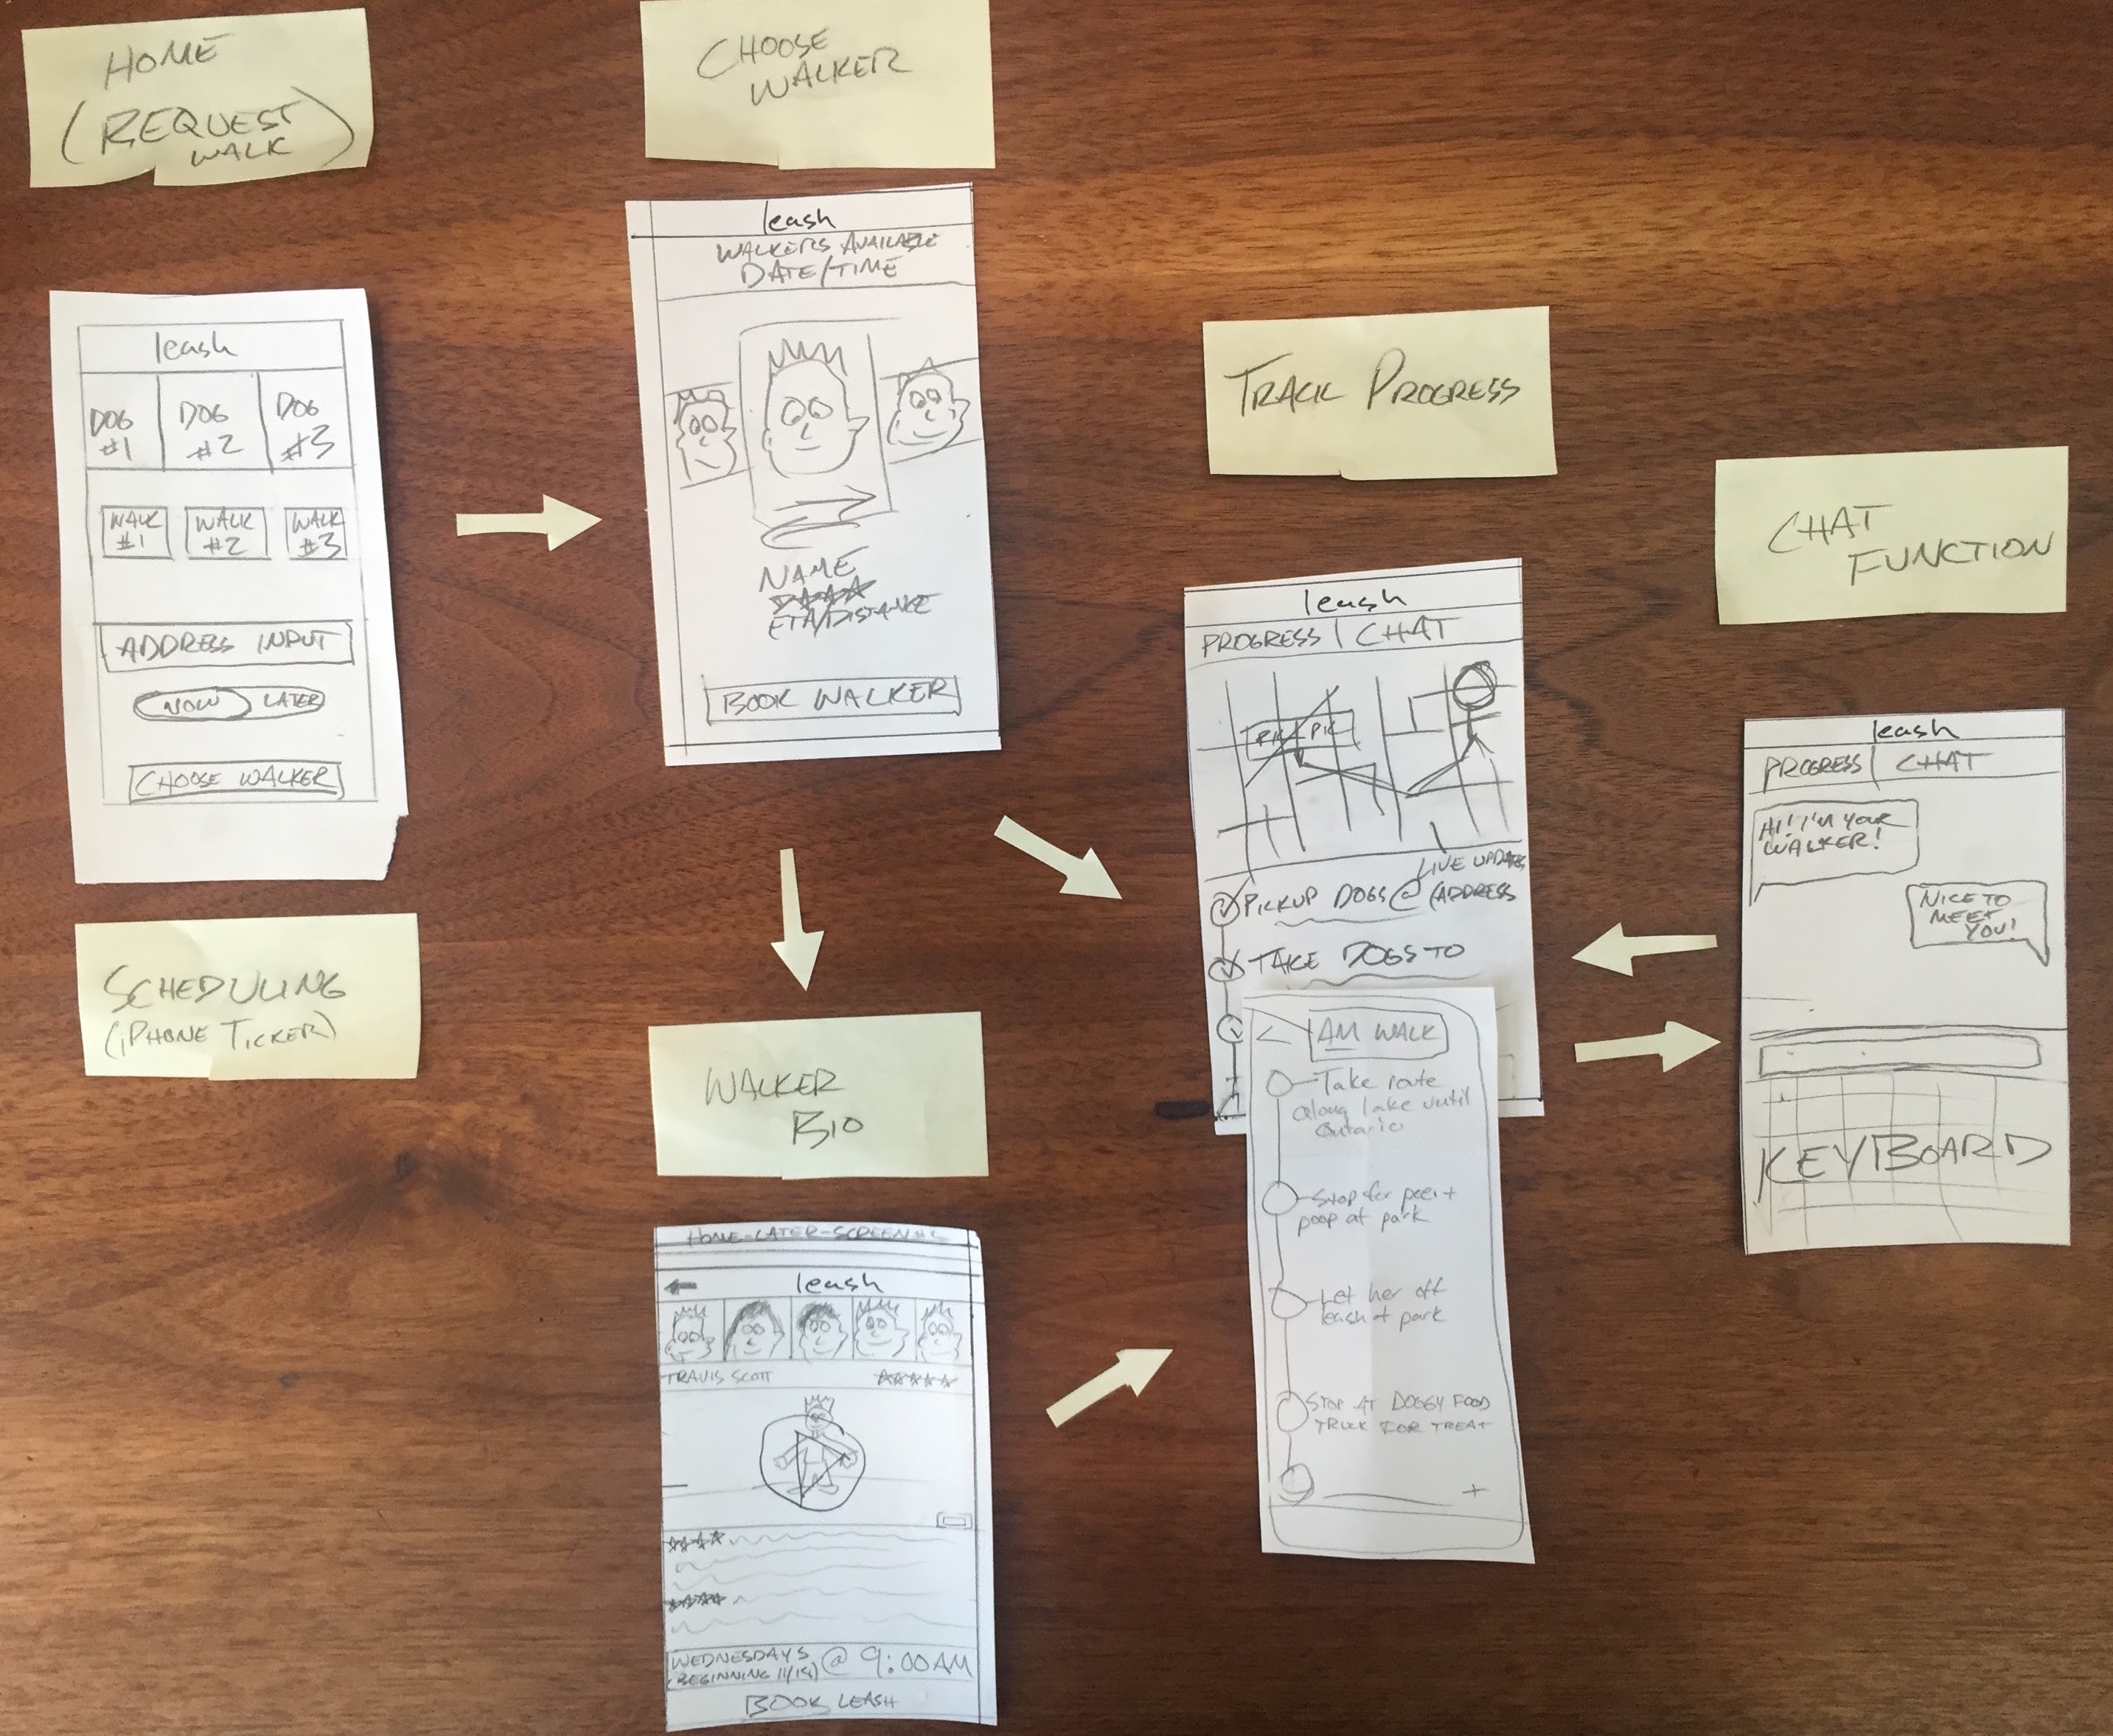 HOME
(REQUEST
WALK)
leash
DOG
#1
DOG
#2
DOG
#3
WALK
#1
WALK
#2
WALK
#3
ADDRESS INPUT
NOW
LATER
CHOOSE WALKER
SCHEDULING
(iPHONE TICKER)
CHOOSE
WALKER
leash
WALKERS AVAILABLE
DATE/TIME
NAME
ETA/DISTANCE
BOOK WALKER
WALKER
BIO
HOME-LATER-SCREEN
leash
TRAVIS SCOTT
WEDNESDAYS
(BEGINNING 11/19)
@ 9:00AM
BOOK LEASH
TRACK PROGRESS
leash
PROGRESS | CHAT
PIC
PIC
LIVE UPDATES
PICKUP DOGS @ (ADDRESS
TAKE DOGS TO
<
AM WALK
Take route
along lake until
Ontario
Stop for pee +
poop at park
Let her off
leash at park
STOP AT DOGGY FOOD
TRUCK FOR TREAT
+
CHAT
FUNCTION
leash
PROGRESS | CHAT
HI! I'M YOUR
WALKER!
NICE TO
MEET
YOU!
KEYBOARD